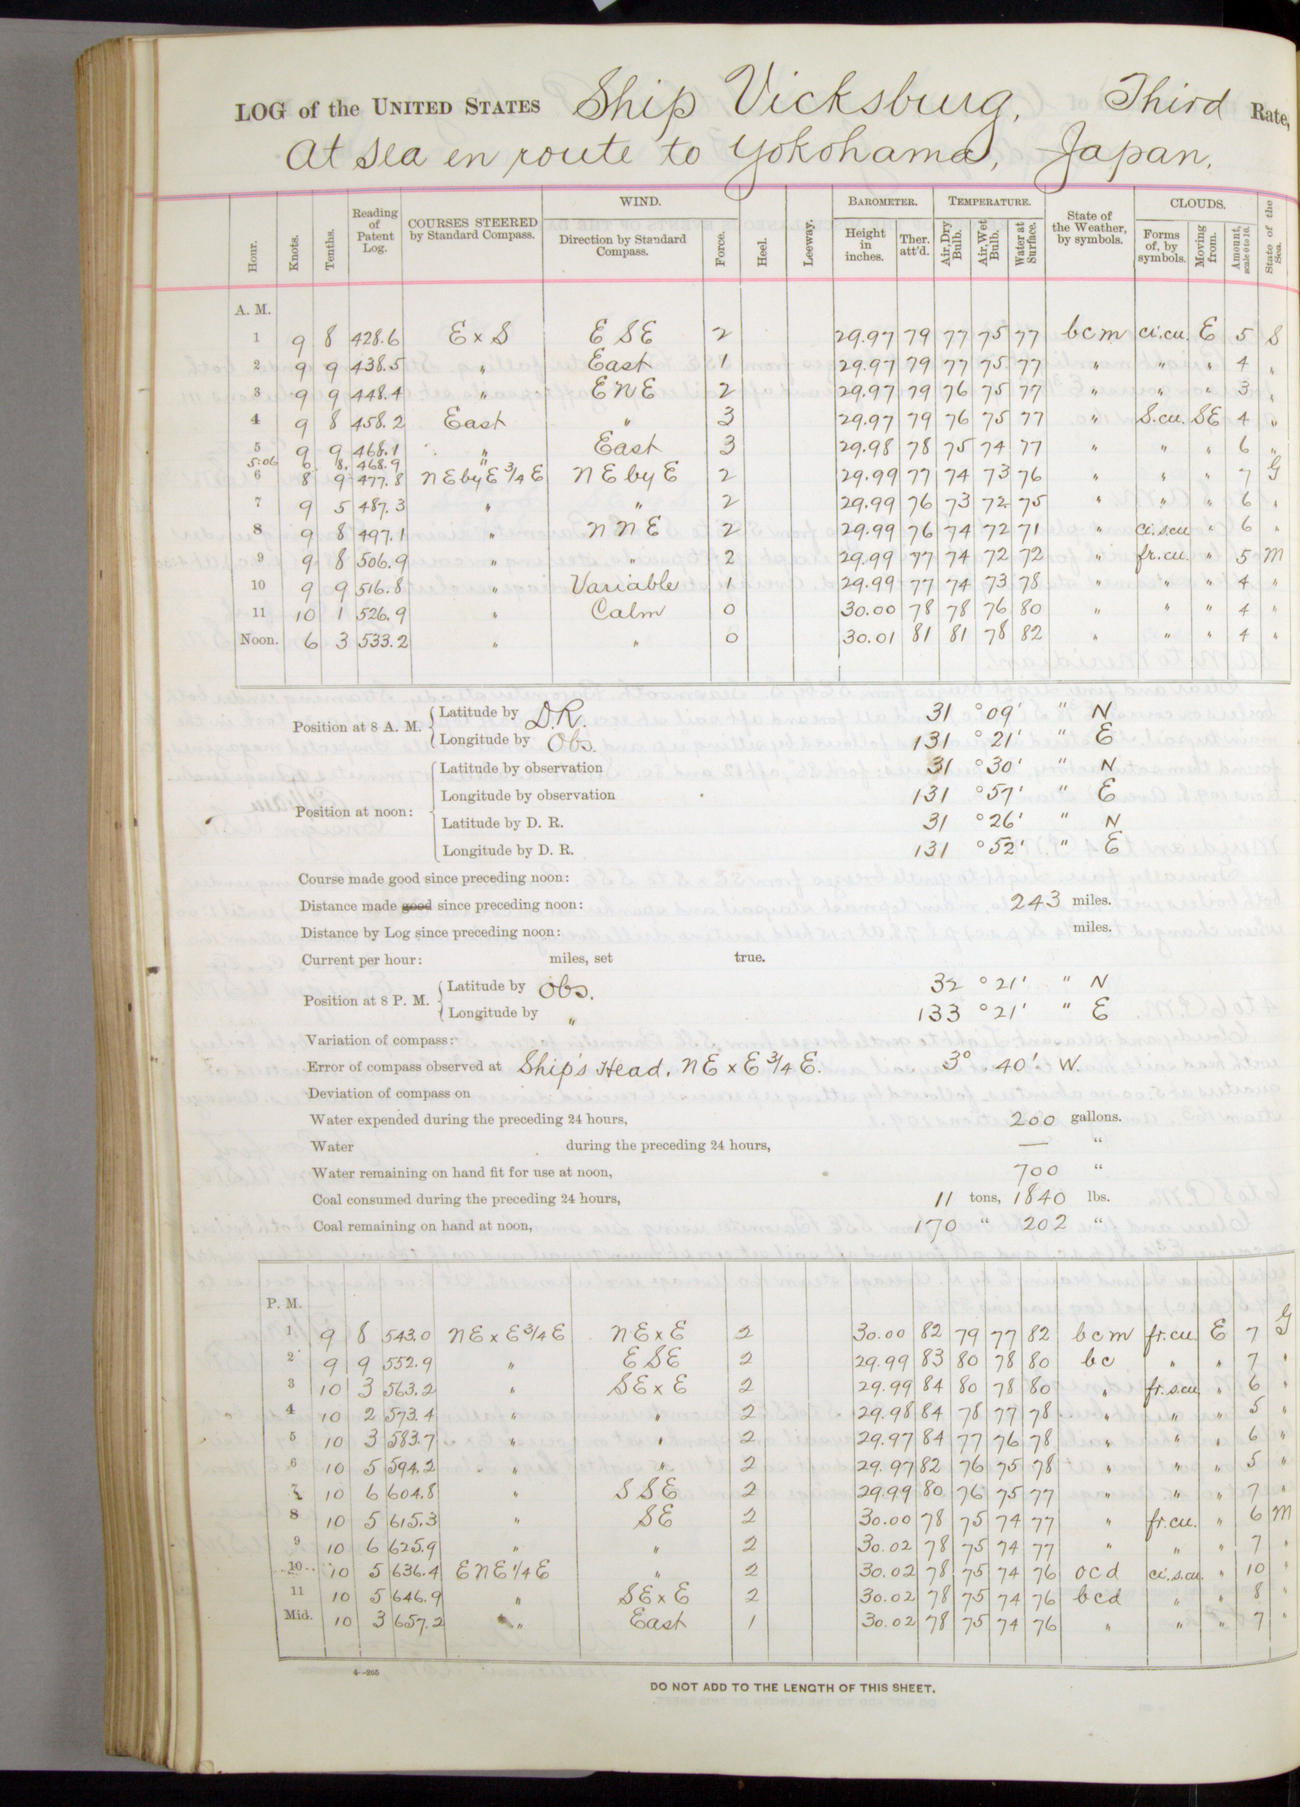 LOG of the UNITED STATES Ship Vicksburg, Third Rate,
At sea en route to Yokohama, Japan.
Hour. Knots. Tenths. Reading of Patent Log. COURSES STEERED by Standard Compass. WIND. Direction by Standard Compass. Force. Heel. Leeway. BAROMETER. Height in inches. Ther. att'd. TEMPERATURE. Air, Dry Bulb. Air, Wet Bulb. Water at Surface. State of the Weather, by symbols. CLOUDS. Forms of, by symbols. Moving from. Amount, scale 0 to 10. State of the Sea.
A. M.
1 9 8 428.6 E x S E S E 2 29.97 79 77 75 77 bcm ci.cu. E 5 S
2 9 9 438.5 " East 1 29.97 79 77 75 77 " " " 4 "
3 9 9 448.4 " E N E 2 29.97 79 76 75 77 " " " 3 "
4 9 8 458.2 East " 3 29.97 79 76 75 77 " S.cu. SE 4 "
5 9 9 468.1 " East 3 29.98 78 75 74 77 " " " 6 "
5:06 0 8 468.9 "
6 8 9 477.8 NE by E 3/4 E NE by E 2 29.99 77 74 73 76 " " " 7 G
7 9 5 487.3 " " 2 29.99 76 73 72 75 " " " 6 "
8 9 8 497.1 " N N E 2 29.99 76 74 72 71 " ci.s.cu " 6 "
9 9 8 506.9 " " 2 29.99 77 74 72 72 " fr.cu. " 5 M
10 9 9 516.8 " Variable 1 29.99 77 74 73 78 " " " 4 "
11 10 1 526.9 " Calm 0 30.00 78 78 76 80 " " " 4 "
Noon. 6 3 533.2 " " 0 30.01 81 81 78 82 " " " 4 "
Position at 8 A. M. Latitude by D.R. 31 ° 09' " N
Longitude by Obs. 131 ° 21' " E
Position at noon: Latitude by observation 31 ° 30' " N
Longitude by observation 131 ° 57' " E
Latitude by D. R. 31 ° 26' " N
Longitude by D. R. 131 ° 52' " E
Course made good since preceding noon:
Distance made good since preceding noon: 243 miles.
Distance by Log since preceding noon: miles.
Current per hour: miles, set true.
Position at 8 P. M. Latitude by Obs. 32 ° 21' " N
Longitude by " 133 ° 21' " E
Variation of compass:
Error of compass observed at Ship's Head, NE x E 3/4 E. 3° 40' W.
Deviation of compass on
Water expended during the preceding 24 hours, 200 gallons.
Water during the preceding 24 hours, — "
Water remaining on hand fit for use at noon, 700 "
Coal consumed during the preceding 24 hours, 11 tons, 1840 lbs.
Coal remaining on hand at noon, 170 " 202 "
P. M.
1 9 8 543.0 NE x E 3/4 E NE x E 2 30.00 82 79 77 82 bcm fr.cu. E 7 G
2 9 9 552.9 " E S E 2 29.99 83 80 78 80 bc " " 7 "
3 10 3 563.2 " SE x E 2 29.99 84 80 78 80 " fr.s.cu. " 6 "
4 10 2 573.4 " " 2 29.98 84 78 77 78 " " " 5 "
5 10 3 583.7 " " 2 29.97 84 77 76 78 " " " 6 "
6 10 5 594.2 " " 2 29.97 82 76 75 78 " " " 5 "
7 10 6 604.8 " S S E 2 29.99 80 76 75 77 " " " 7 "
8 10 5 615.3 " SE 2 30.00 78 75 74 77 " fr.cu. " 6 M
9 10 6 625.9 " " 2 30.02 78 75 74 77 " " " 7 "
10 10 5 636.4 E N E 1/4 E " 2 30.02 78 75 74 76 ocd ci.s.cu. " 10 "
11 10 5 646.9 " SE x E 2 30.02 78 75 74 76 bcd " " 8 "
Mid. 10 3 657.2 " East 1 30.02 78 75 74 76 " " " 7 "
4—265
DO NOT ADD TO THE LENGTH OF THIS SHEET.